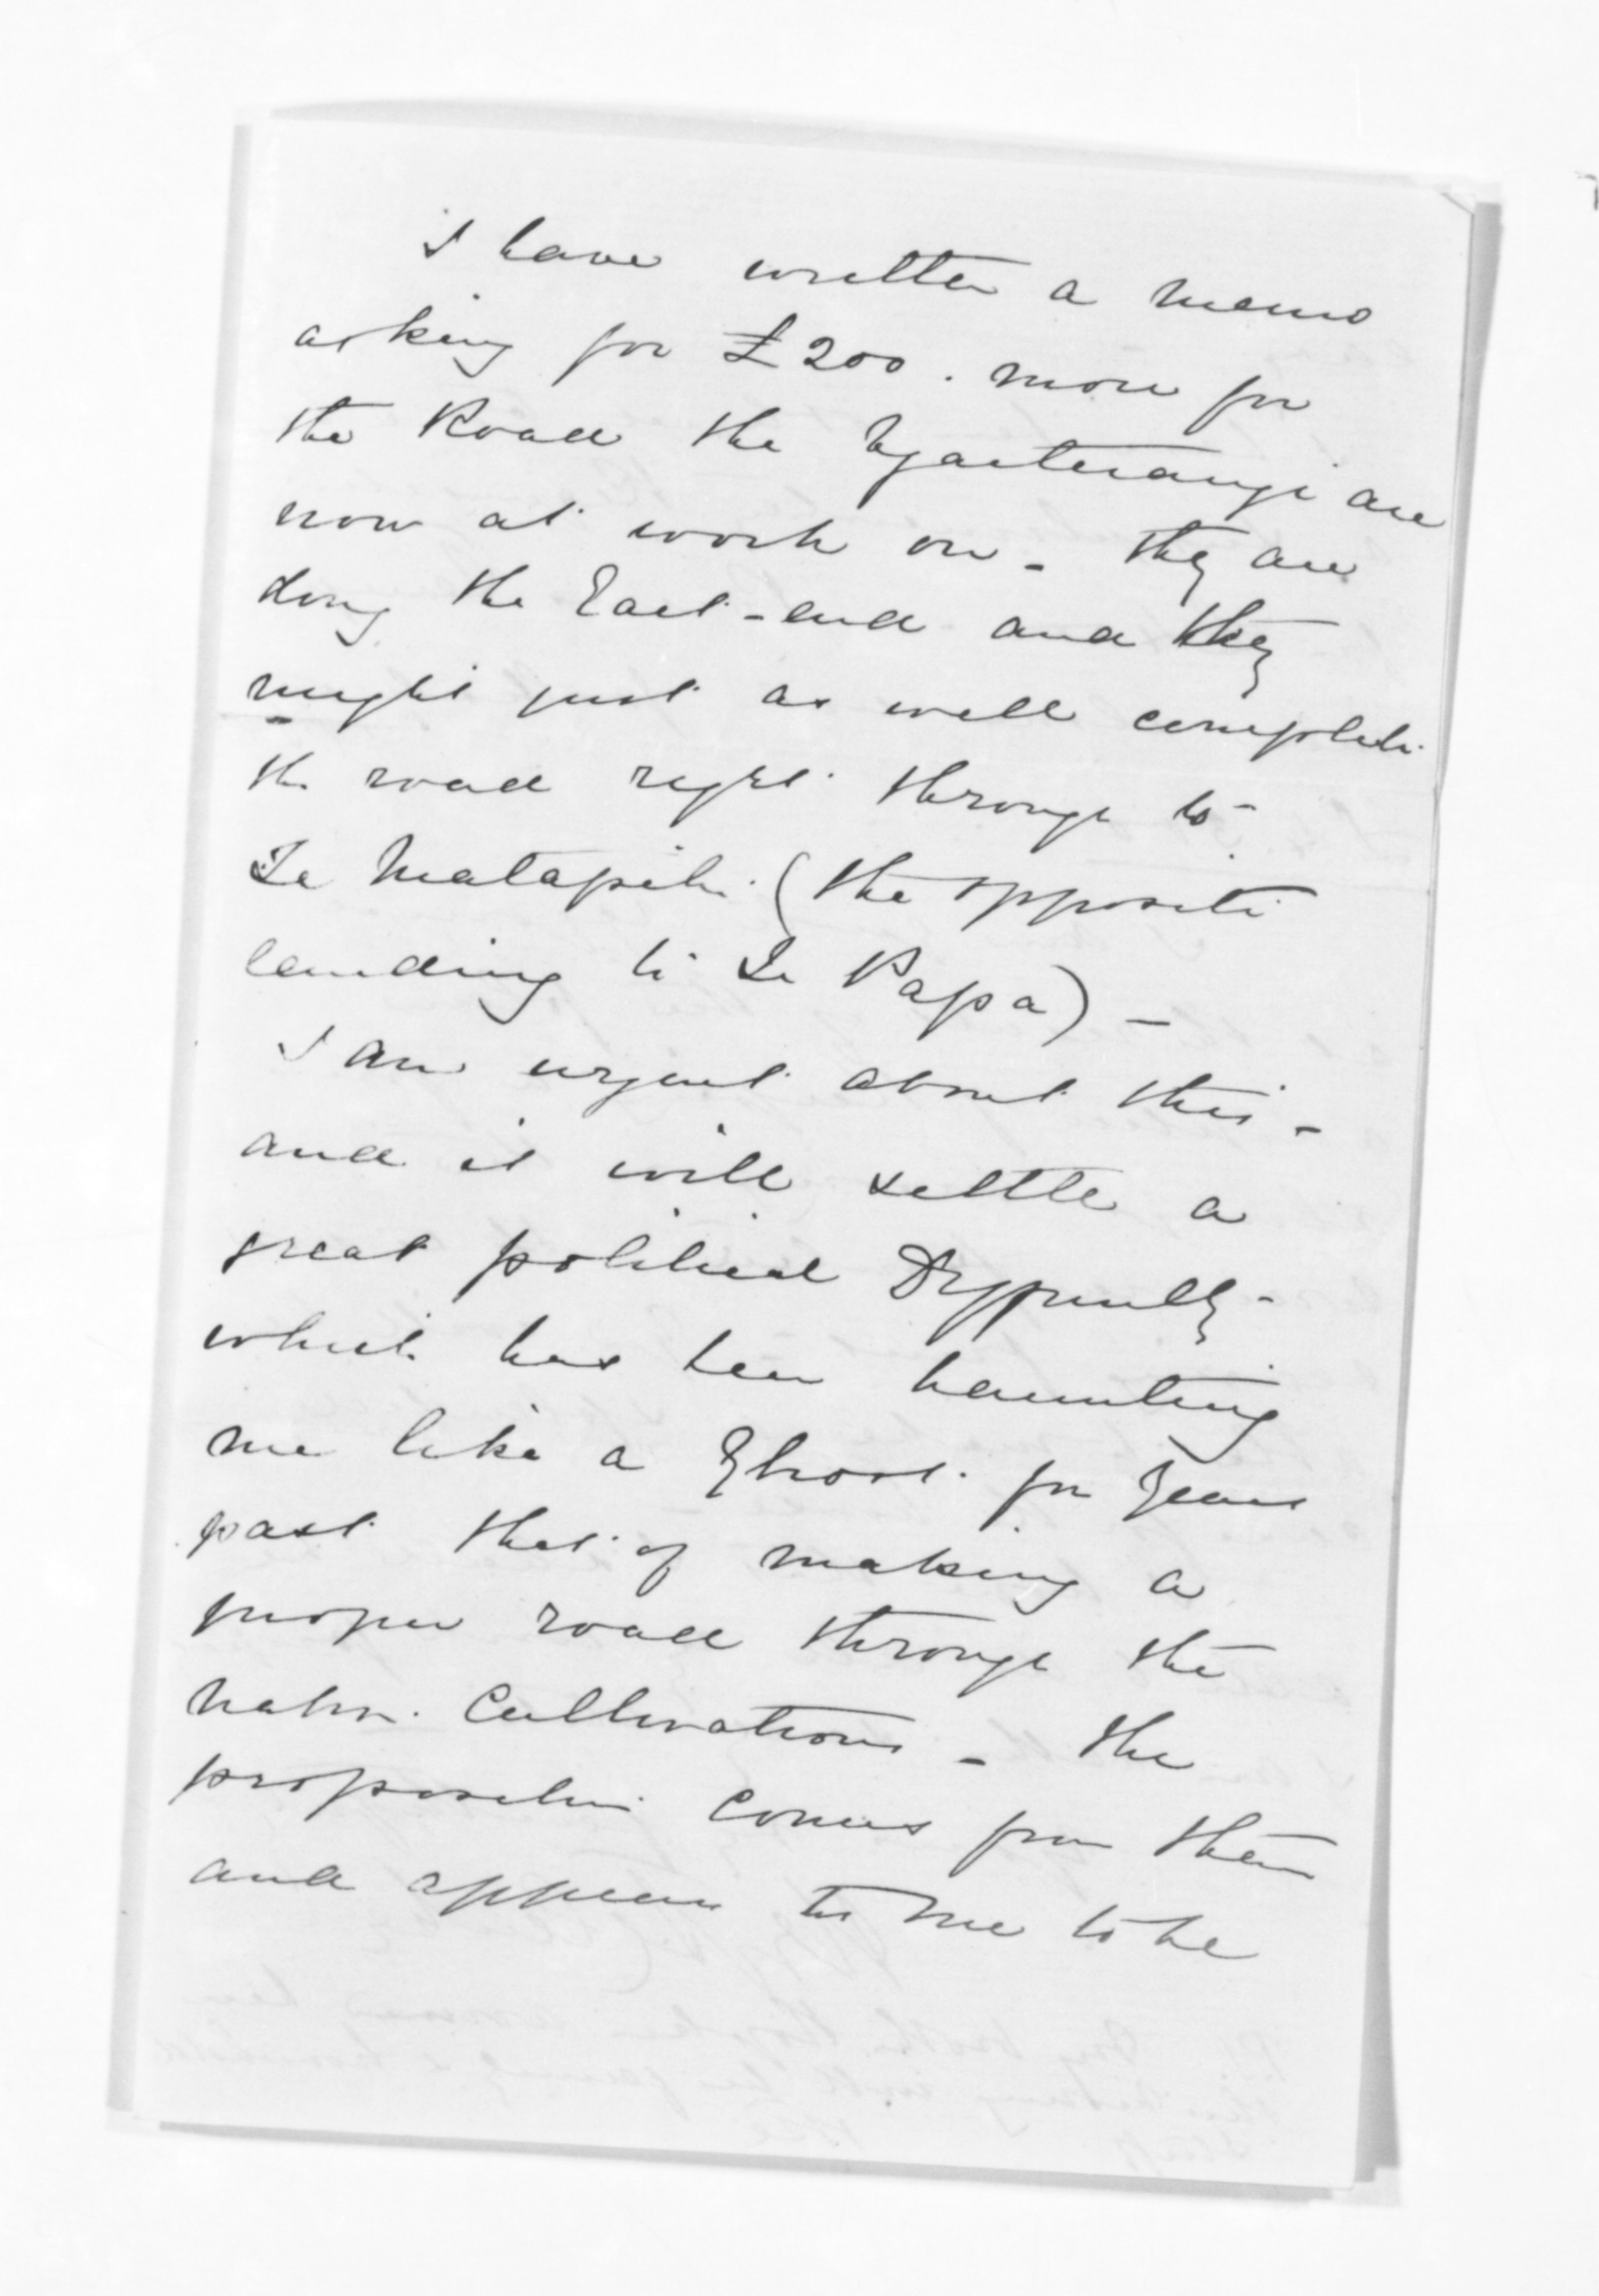 I have written a memo
asking for £200. more for
the Road the Ngaiterangi are
now at work on - they are
doing the East-end and they
might just as well complete
the road right through to
Te Matapihi (the opposite
landing to Te Papa) -
I am urgent about this -
and it will settle a
great political Difficulty -
which has been haunting
me like a Ghost for years
past that of making a
proper road through the
native Cultivations - the
proposition comes from them
and appears to me to be